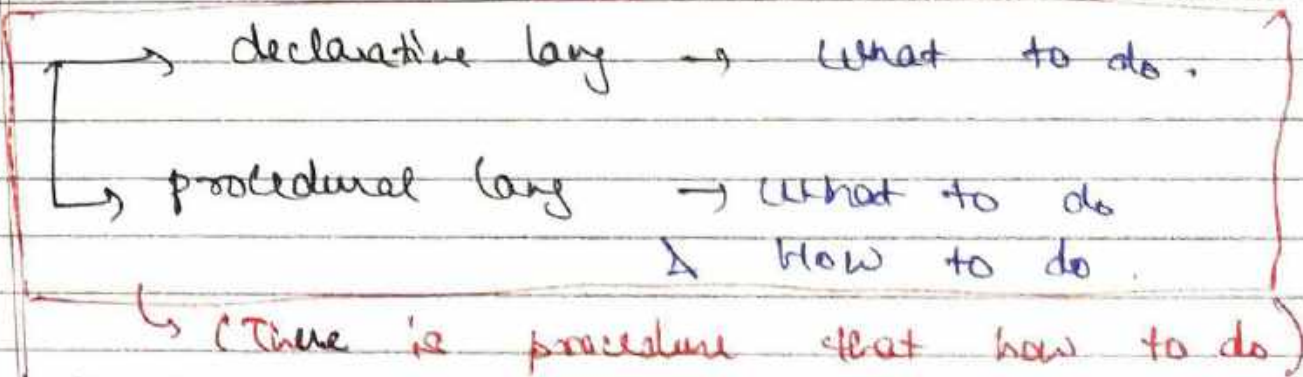 → declarative lang → What to do.
↳ procedural lang → What to do
& How to do.
↳ (There is procedure that how to do)